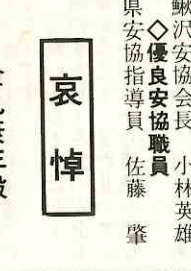 鰍沢安協会長　小林英雄
◇優良安協職員
県安協指導員　佐藤　肇
哀悼